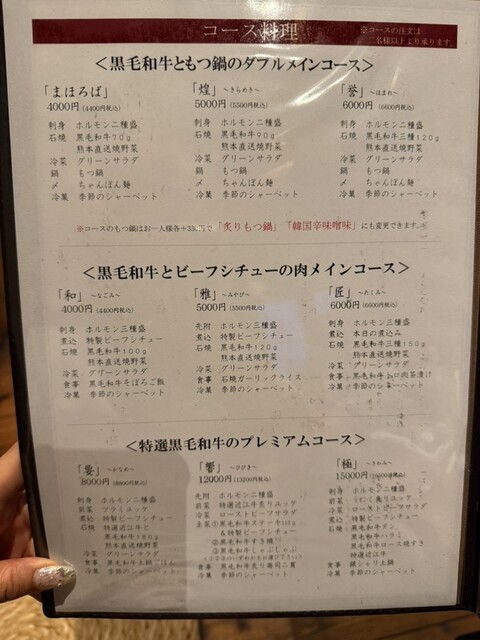 コース料理
※コースの注文は
二名様以上より承ります。
＜黒毛和牛ともつ鍋のダブルメインコース＞
「まほろば」
4000円(4400円税込)
刺身 ホルモン二種盛
石焼 黒毛和牛70g
熊本直送焼野菜
冷菜 グリーンサラダ
鍋 もつ鍋
〆 ちゃんぽん麺
冷菓 季節のシャーベット
「煌」～きらめき～
5000円(5500円税込)
刺身 ホルモン二種盛
石焼 黒毛和牛90g
熊本直送焼野菜
冷菜 グリーンサラダ
鍋 もつ鍋
〆 ちゃんぽん麺
冷菓 季節のシャーベット
「誉」～ほまれ～
6000円(6600円税込)
刺身 ホルモン二種盛
石焼 黒毛和牛三種120g
熊本直送焼野菜
冷菜 グリーンサラダ
鍋 もつ鍋
〆 ちゃんぽん麺
冷菓 季節のシャーベット
※コースのもつ鍋はお一人様各+330円で「炙りもつ鍋」「韓国辛味噌味」にも変更できます。
＜黒毛和牛とビーフシチューの肉メインコース＞
「和」～なごみ～
4000円(4400円税込)
刺身 ホルモン三種盛
煮込 特製ビーフシチュー
石焼 黒毛和牛100g
熊本直送焼野菜
冷菜 グリーンサラダ
食事 黒毛和牛そぼろご飯
冷菓 季節のシャーベット
「雅」～みやび～
5000円(5500円税込)
先附 ホルモン三種盛
煮込 特製ビーフシチュー
石焼 黒毛和牛120g
熊本直送焼野菜
冷菜 グリーンサラダ
食事 石焼ガーリックライス
冷菓 季節のシャーベット
「匠」～たくみ～
6000円(6600円税込)
刺身 ホルモン三種盛
煮込 本日の煮込み
石焼 黒毛和牛三種150g
熊本直送焼野菜
冷菜 グリーンサラダ
食事 黒毛和牛トロ肉茶漬け
冷菓 季節のシャーベット
＜特選黒毛和牛のプレミアムコース＞
「要」～かなめ～
8000円(8800円税込)
刺身 ホルモン三種盛
前菜 ツラミユッケ
煮込 特製ビーフシチュー
石焼 特選近江牛と
黒毛和牛180g
熊本直送焼野菜
冷菜 グリーンサラダ
食事 黒毛和牛土鍋ごはん
冷菓 季節のシャーベット
「響」～ひびき～
12000円(13200円税込)
先附 ホルモン三種盛
前菜 特選近江牛炙りユッケ
冷菜 ローストビーフサラダ
主菜 ①黒毛和牛ステーキ
&特製ビーフシチュー
②黒毛和牛すき焼り
③黒毛和牛しゃぶしゃぶ
食事 黒毛和牛炙り寿司二貫
冷菓 季節のシャーベット
「極」～きわみ～
15000円(16500円税込)
刺身 ホルモン三種盛
前菜 ユッケ
冷菜 ローストビーフサラダ
煮込 特製ビーフシチュー
石焼 黒毛和牛タン
黒毛和牛ハラミ
黒毛和牛ロース焼すき
特選近江牛
食事 銀シャリ土鍋
冷菓 季節のシャーベット